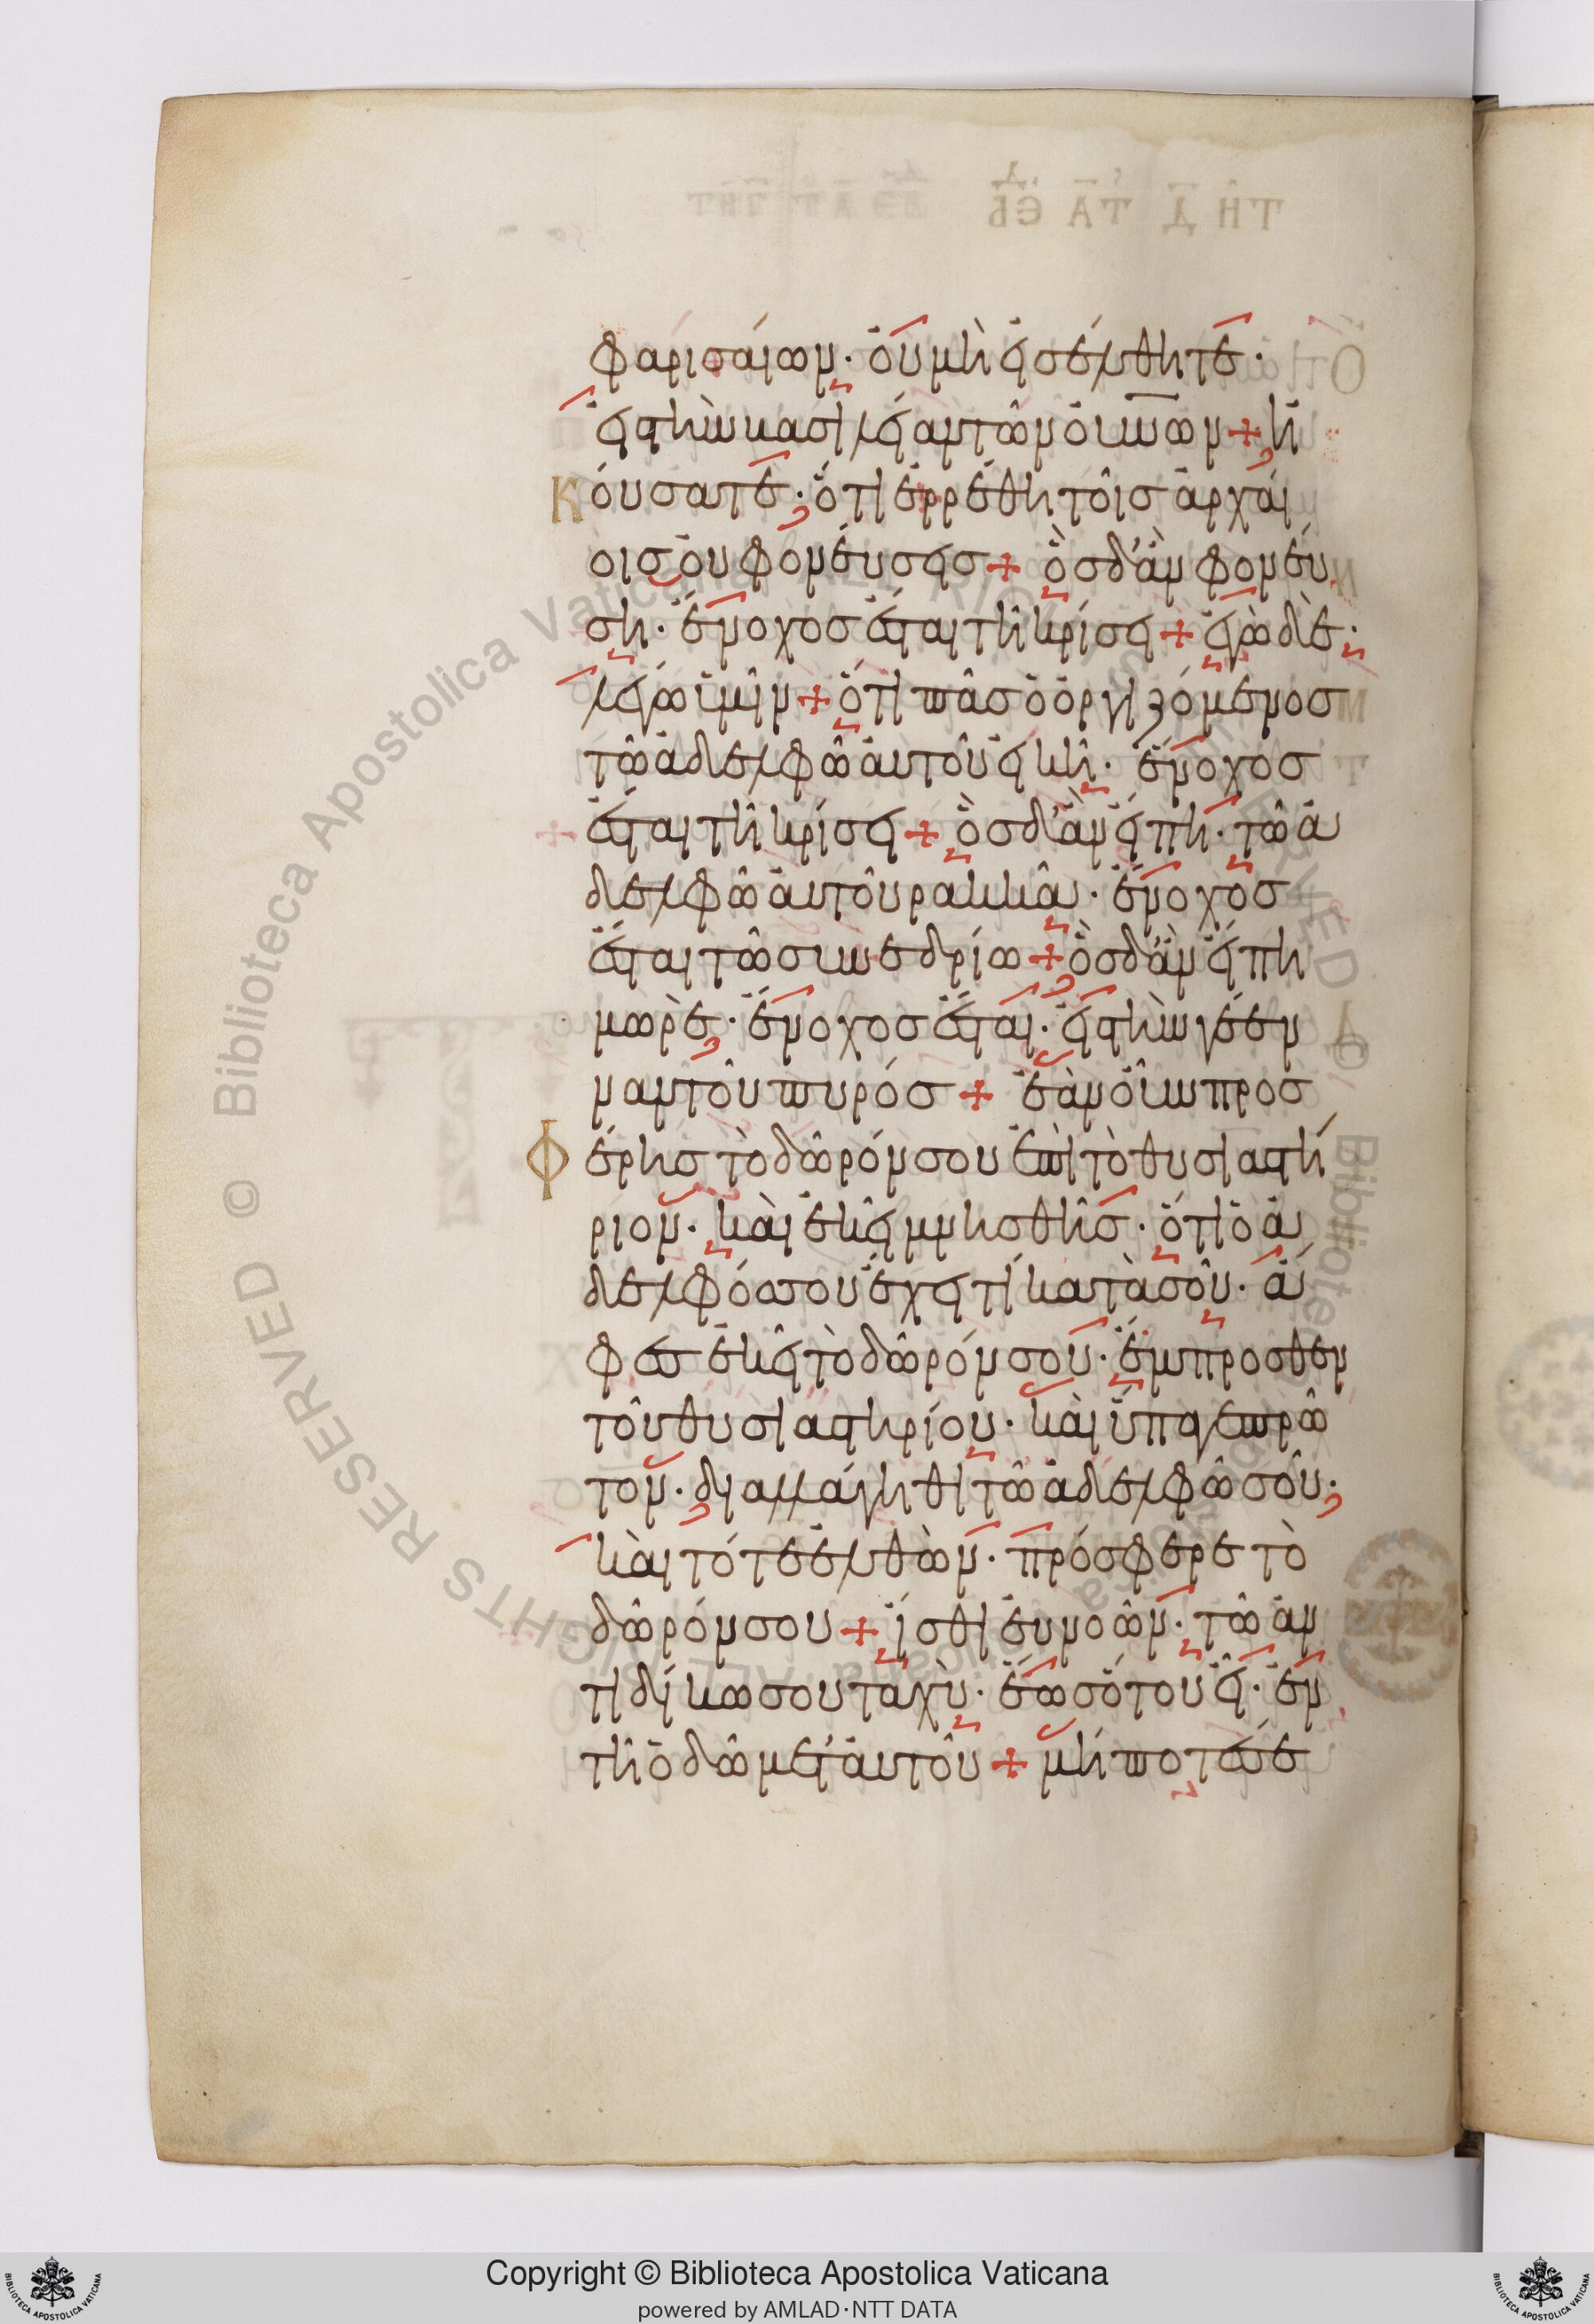 φαρισαίων· οὐ μὴ εἰσέλθητε·
εἰς τὴν βασιλείαν τῶν οὐ̅ν̅ω̅ν + ἠ
κούσατε· ὅτι ἐρρέθη τοῖς ἀρχαί
οις οὐ φονεύσεις + ὃς δ' ἂν φονεύ
ση· ἔνοχος ἔσται τῆ κρίσει + ἐγὼ δὲ·
λέγω ὑμῖν + ὅτι πᾶς ὁ ὀργιζόμενος
τῶ ἀδελφῶ αὐτοῦ εἰκῆ· ἔνοχος
ἔσται τῆ κρίσει + ὃς δ' ἂν εἴπη· τῶ ἀ
δελφῶ αὐτοῦ ρακκᾶ· ἔνοχος
ἔσται τῶ συνεδρίω + ὃς δ' ἂν εἴπη
μωρὲ· ἔνοχος ἔσται· εἰς τὴν γέεν
ναν τοῦ πυρός + ἐὰν οὖν προσ
φέρης τὸ δῶρόν σου ἐπὶ τὸ θυσιαστή
ριον· καὶ ἐκεῖ μνησθῆς· ὅτι ὁ ἀ
δελφός σου ἔχει τί κατὰ σοῦ· ἄ
φες ἐκεῖ τὸ δῶρόν σου· ἔμπροσθεν
τοῦ θυσιαστηρίου· καὶ ὕπαγε πρῶ
τον· διαλλάγηθι τῶ ἀδελφῶ σοῦ·
καὶ τότε ἐλθὼν· πρόσφερε τὸ
δῶρόν σου + ἴσθι εὐνοῶν· τῶ ἀν
τιδίκω σου ταχὺ· ἕως ὅτου εἶ· ἐν
τῆ ὁδῶ μετ' αὐτοῦ + μήποτέ σε
Copyright © Biblioteca Apostolica Vaticana
powered by AMLAD·NTT DATA